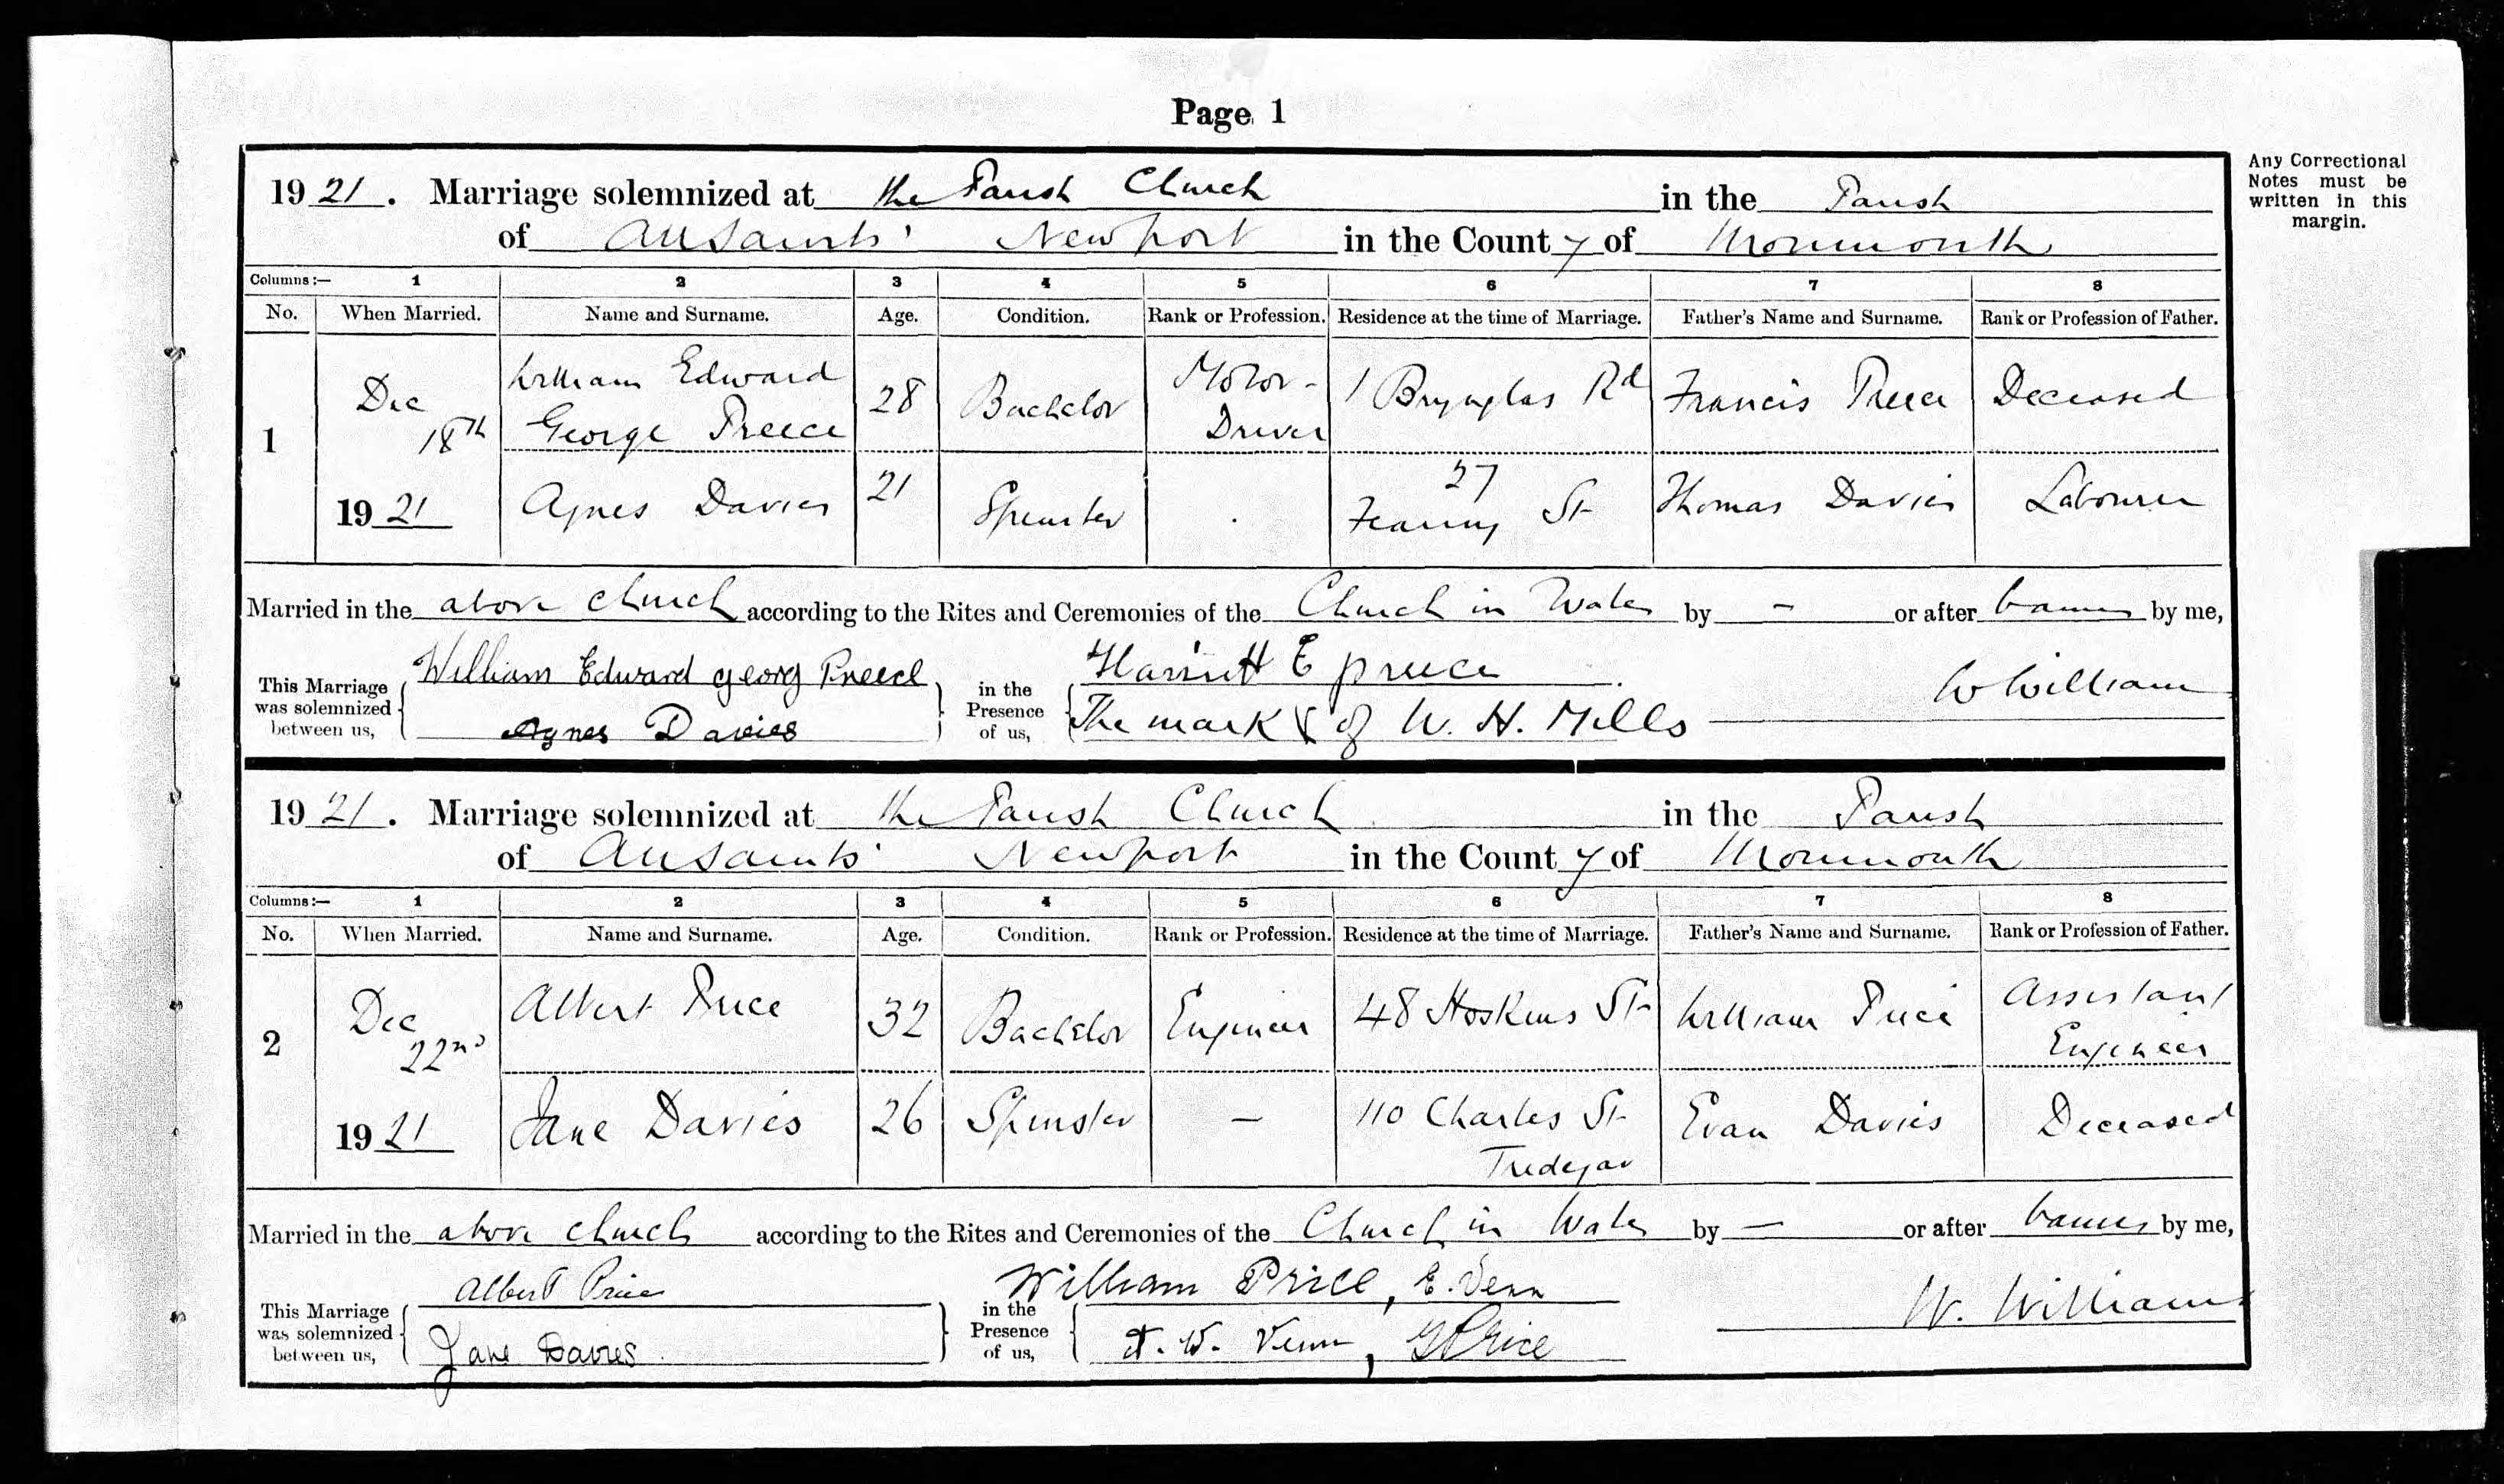 Page 1
Any Correctional
Notes must be
written in this
margin.
1921. Marriage solemnized at the Parish Church in the Parish
of All Saints' Newport in the County of Monmouth
Columns:— 1 2 3 4 5 6 7 8
No. When Married. Name and Surname. Age. Condition. Rank or Profession. Residence at the time of Marriage. Father's Name and Surname. Rank or Profession of Father.
1 Dec 18th 1921 William Edward George Preece 28 Bachelor Motor-Driver 1 Brynglas Rd Francis Preece Deceased
Agnes Davies 21 Spinster . 27 St Thomas Davies Labourer
Married in the above church according to the Rites and Ceremonies of the Church in Wales by — or after banns by me,
This Marriage was solemnized between us, William Edward georg Preece in the Presence of us, Harriett E preece W William
Agnes Davies The mark X of W. H. Mills
1921. Marriage solemnized at the Parish Church in the Parish
of All Saints' Newport in the County of Monmouth
Columns:— 1 2 3 4 5 6 7 8
No. When Married. Name and Surname. Age. Condition. Rank or Profession. Residence at the time of Marriage. Father's Name and Surname. Rank or Profession of Father.
2 Dec 22nd 1921 Albert Price 32 Bachelor Engineer 48 Hoskins St William Price Assistant Engineer
Jane Davies 26 Spinster — 110 Charles St Tredegar Evan Davies Deceased
Married in the above church according to the Rites and Ceremonies of the Church in Wales by — or after banns by me,
This Marriage was solemnized between us, Albert Price in the Presence of us, William Price, E. Venn W. Williams
Jane Davies W. Venn, G Price